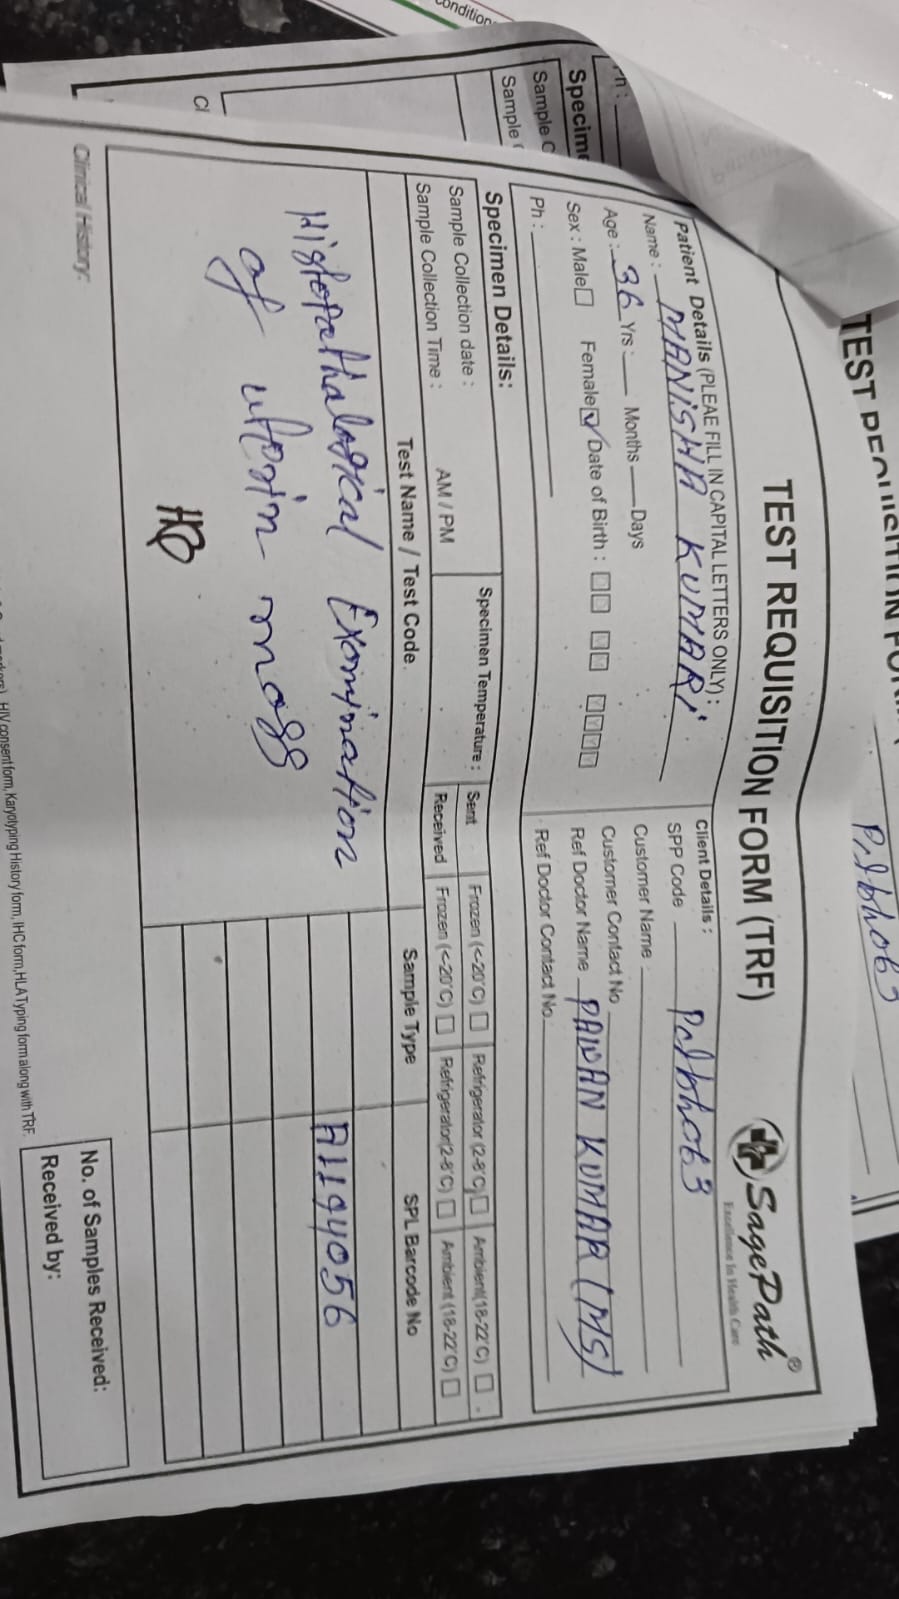 ondition
TEST REQUISITION FOR
Palbh063
TEST REQUISITION FORM (TRF)
SagePath®
Excellence In Health Care
Patient Details (PLEAE FILL IN CAPITAL LETTERS ONLY):
Name : MANISHA KUMARI
Age : 36 Yrs : Months Days
Sex : Male Female Date of Birth : Y Y Y Y
Ph :
Client Details :
SPP Code Palbh063
Customer Name
Customer Contact No
Ref Doctor Name PAWAN KUMAR (MS)
Ref Doctor Contact No.
Ph :
Specime
Sample C
Sample
Specimen Details:
Sample Collection date :
Sample Collection Time : AM / PM
Specimen Temperature :
Sent Frozen (<-20°C) Refrigerator (2-8°C) Ambient(18-22°C)
Received Frozen (<-20°C) Refrigerator(2-8°C) Ambient (18-22°C)
Test Name / Test Code Sample Type SPL Barcode No
Histopathalogical Examination A1194056
of
Cl
Clinical History:
HIV consent form, Karyotyping History form, IHC form,HLA Typing form along with TRF.
No. of Samples Received:
Received by: